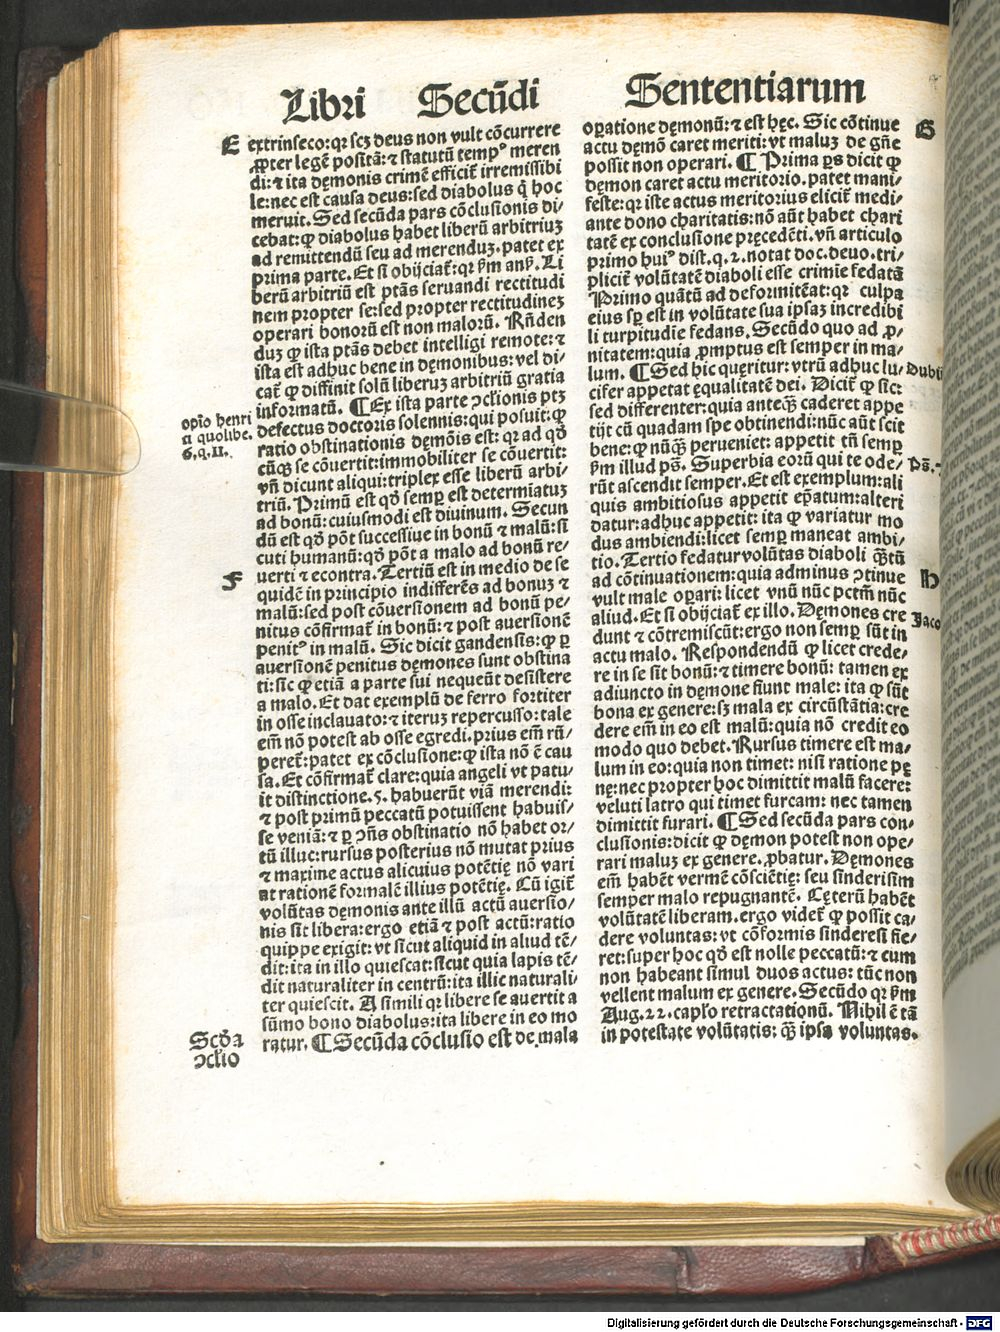 Libri Secūdi Sententiarum
E
extrinseco: qr scz deus non vult cōcurrere
ꝓpter legē positā: ⁊ statutū tempꝰ meren
di: ⁊ ita dęmonis crimē efficit̄ irremissibi
le: nec est causa deus: sed diabolus q̇ hoc
meruit. Sed secūda pars cōclusionis di
cebat: ꝙ diabolus habet liberū arbitriuꝫ
ad remittendū seu ad merenduꝫ. patet ex
prima parte. Et si obijciat̄: qr ẜm anẜ. Li
berū arbitriū est ptās seruandi rectitudi
nem propter se: sed propter rectitudineꝫ
operari bonorū est non malorū. Rn̄den
duꝫ ꝙ ista ptās debet intelligi remote: ⁊
ista est adhuc bene in dęmonibus: vel di⸗
cat̄ ꝙ diffinit solū liberuꝫ arbitriū gratia
informatū. ¶ Ex ista parte ↄclionis ptꝫ
defectus doctoris solennis: qui posuit: ꝙ
ratio obstinationis dęmōis est: qr ad qd̄
cūqꝫ se cōuertit: immobiliter se cōuertit:
vn̄ dicunt aliqui: triplex esse liberū arbi⸗
triū. Primū est qd̄ semꝑ est determiatuꝫ
ad bonū: cuiusmodi est diuinum. Secun
dū est qd̄ pōt successiue in bonū ⁊ malū: si
cuti humanū: qd̄ pōt a malo ad bonū re⸗
uerti ⁊ econtra. Tertiū est in medio de se
quidē in principio indifferēs ad bonuꝫ ⁊
malū: sed post cōuersionem ad bonū pe⸗
nitus cōfirmat̄ in bonū: ⁊ post auersionē
penitꝰ in malū. Sic dicit gandensis: ꝙ ꝑ
auersionē penitus dęmones sunt obstina
ti: sic ꝙ etiā a parte sui nequeūt desistere
a malo. Et dat exemplū de ferro fortiter
in osse inclauato: ⁊ iteruꝫ repercusso: tale
em̄ nō potest ab osse egredi. prius em̄ rū⸗
peret̄: patet ex cōclusione: ꝙ ista nō ē cau
sa. Et cōfirmat̄ clare: quia angeli vt patu⸗
it distinctione. 5. habuerūt viā merendi:
⁊ post primū peccatū potuissent habuis⸗
se veniā: ⁊ ꝑ ↄn̄s obstinatio nō habet or⸗
tū illuc: rursus posterius nō mutat prius
⁊ maxime actus alicuius potētię nō vari
at rationē formalē illius potētię. Cū igit̄
volūtas dęmonis ante illū actū auersio⸗
nis sit libera: ergo etiā ⁊ post actū: ratio
quippe exigit: vt sicut aliquid in aliud tē⸗
dit: ita in illo quiescat: sicut quia lapis tē⸗
dit naturaliter in centrū: ita illic naturali⸗
ter quiescit. A simili qr libere se auertit a
sūmo bono diabolus: ita libere in eo mo
ratur. ¶ Secūda cōclusio est de mala
opīo henri
n quolibe.
6. q. 11.
F
Scd̄a
ↄclio
oꝑatione dęmonū: ⁊ est hęc. Sic cōtinue
actu dęmō caret meriti: vt maluꝫ de gn̄e
possit non operari. ¶ Prima ꝑs dicit ꝙ
dęmon caret actu meritorio. patet mani⸗
feste: qr iste actus meritorius elicit̄ medi⸗
ante dono charitatis: nō aūt habet chari
tatē ex conclusione pręcedēti. vn̄ articulo
primo huiꝰ dist. q. 2. notat doc. deuo. tri⸗
plicit̄ volūtatē diaboli esse crimīe fedatā
Primo quātū ad deformitēat: qr culpa
eius sꝑ est in volūtate sua ipsaꝫ incredibi
li turpitudīe fedans. Secūdo quo ad ꝓ⸗
nitatem: quia ꝓmptus est semper in ma⸗
lum. ¶ Sed hic quęritur: vtrū adhuc lu⸗
cifer appetat ęqualitatē dei. Dicit̄ ꝙ sic:
sed differenter: quia anteqꝫ caderet appe
tijt cū quadam spe obtinendi: nūc aūt scit
bene: ꝙ nūqꝫ perueniet: appetit tn̄ semꝑ
ẜm illud pẜ. Superbia eorū qui te ode⸗
rūt ascendit semper. Et est exemplum: ali
quis ambitiosus appetit ep̄atum: alteri
datur: adhuc appetit: ita ꝙ variatur mo
dus ambiendi: licet semꝑ maneat ambi⸗
tio. Tertio fedatur volūtas diaboli qꝫtū
ad cōtinuationem: quia adminus ↄtinue
vult male oꝑari: licet vnū nūc pctm̄ nūc
aliud. Et si obijciat̄ ex illo. Dęmones cre
dunt ⁊ cōtremiscūt: ergo non semꝑ sūt in
actu malo. Respondendū ꝙ licet crede⸗
re in se sit bonū: ⁊ timere bonū: tamen ex
adiuncto in dęmone fiunt male: ita ꝙ sūt
bona ex genere: sꝫ mala ex circūstātia: cre
dere em̄ in eo est malū: quia nō credit eo
modo quo debet. Rursus timere est ma⸗
lum in eo: quia non timet: nisi ratione pę
nę: nec propter hoc dimittit malū facere:
veluti latro qui timet furcam: nec tamen
dimittit furari. ¶ Sed secūda pars con⸗
clusionis: dicit ꝙ dęmon potest non ope⸗
rari maluꝫ ex genere. ꝓbatur. Dęmones
em̄ habēt vermē cōsciētię: seu sinderisim
semper malo repugnantē. Cęterū habēt
volūtatē liberam. ergo videt̄ ꝙ possit ca⸗
dere voluntas: vt cōformis sinderesi fie⸗
ret: super hoc qd̄ est nolle peccatū: ⁊ cum
non habeant simul duos actus: tūc non
vellent malum ex genere. Secūdo qr ẜm
Aug. 22. capło retractationū. Nihil ē tā
in potestate volūtatis: qꝫ ipsa voluntas.
G
Dubiū
H
Jaco
Digitalisierung gefördert durch die Deutsche Forschungsgemeinschaft - DFG